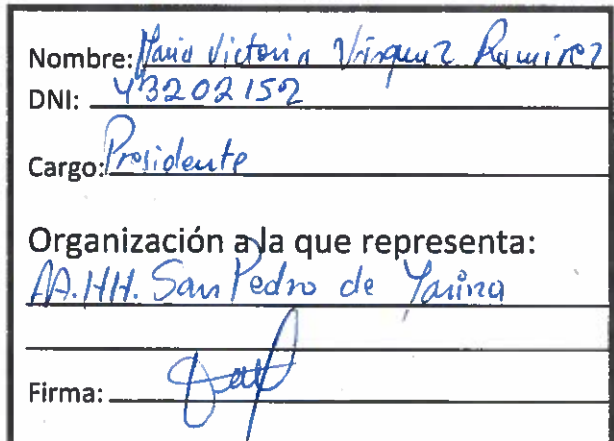 Nombre: Maria Victoria Vásquez Ramirez
DNI: 43202152
Cargo: Presidente
Organización a la que representa:
AA.HH. San Pedro de Yarina
Firma: